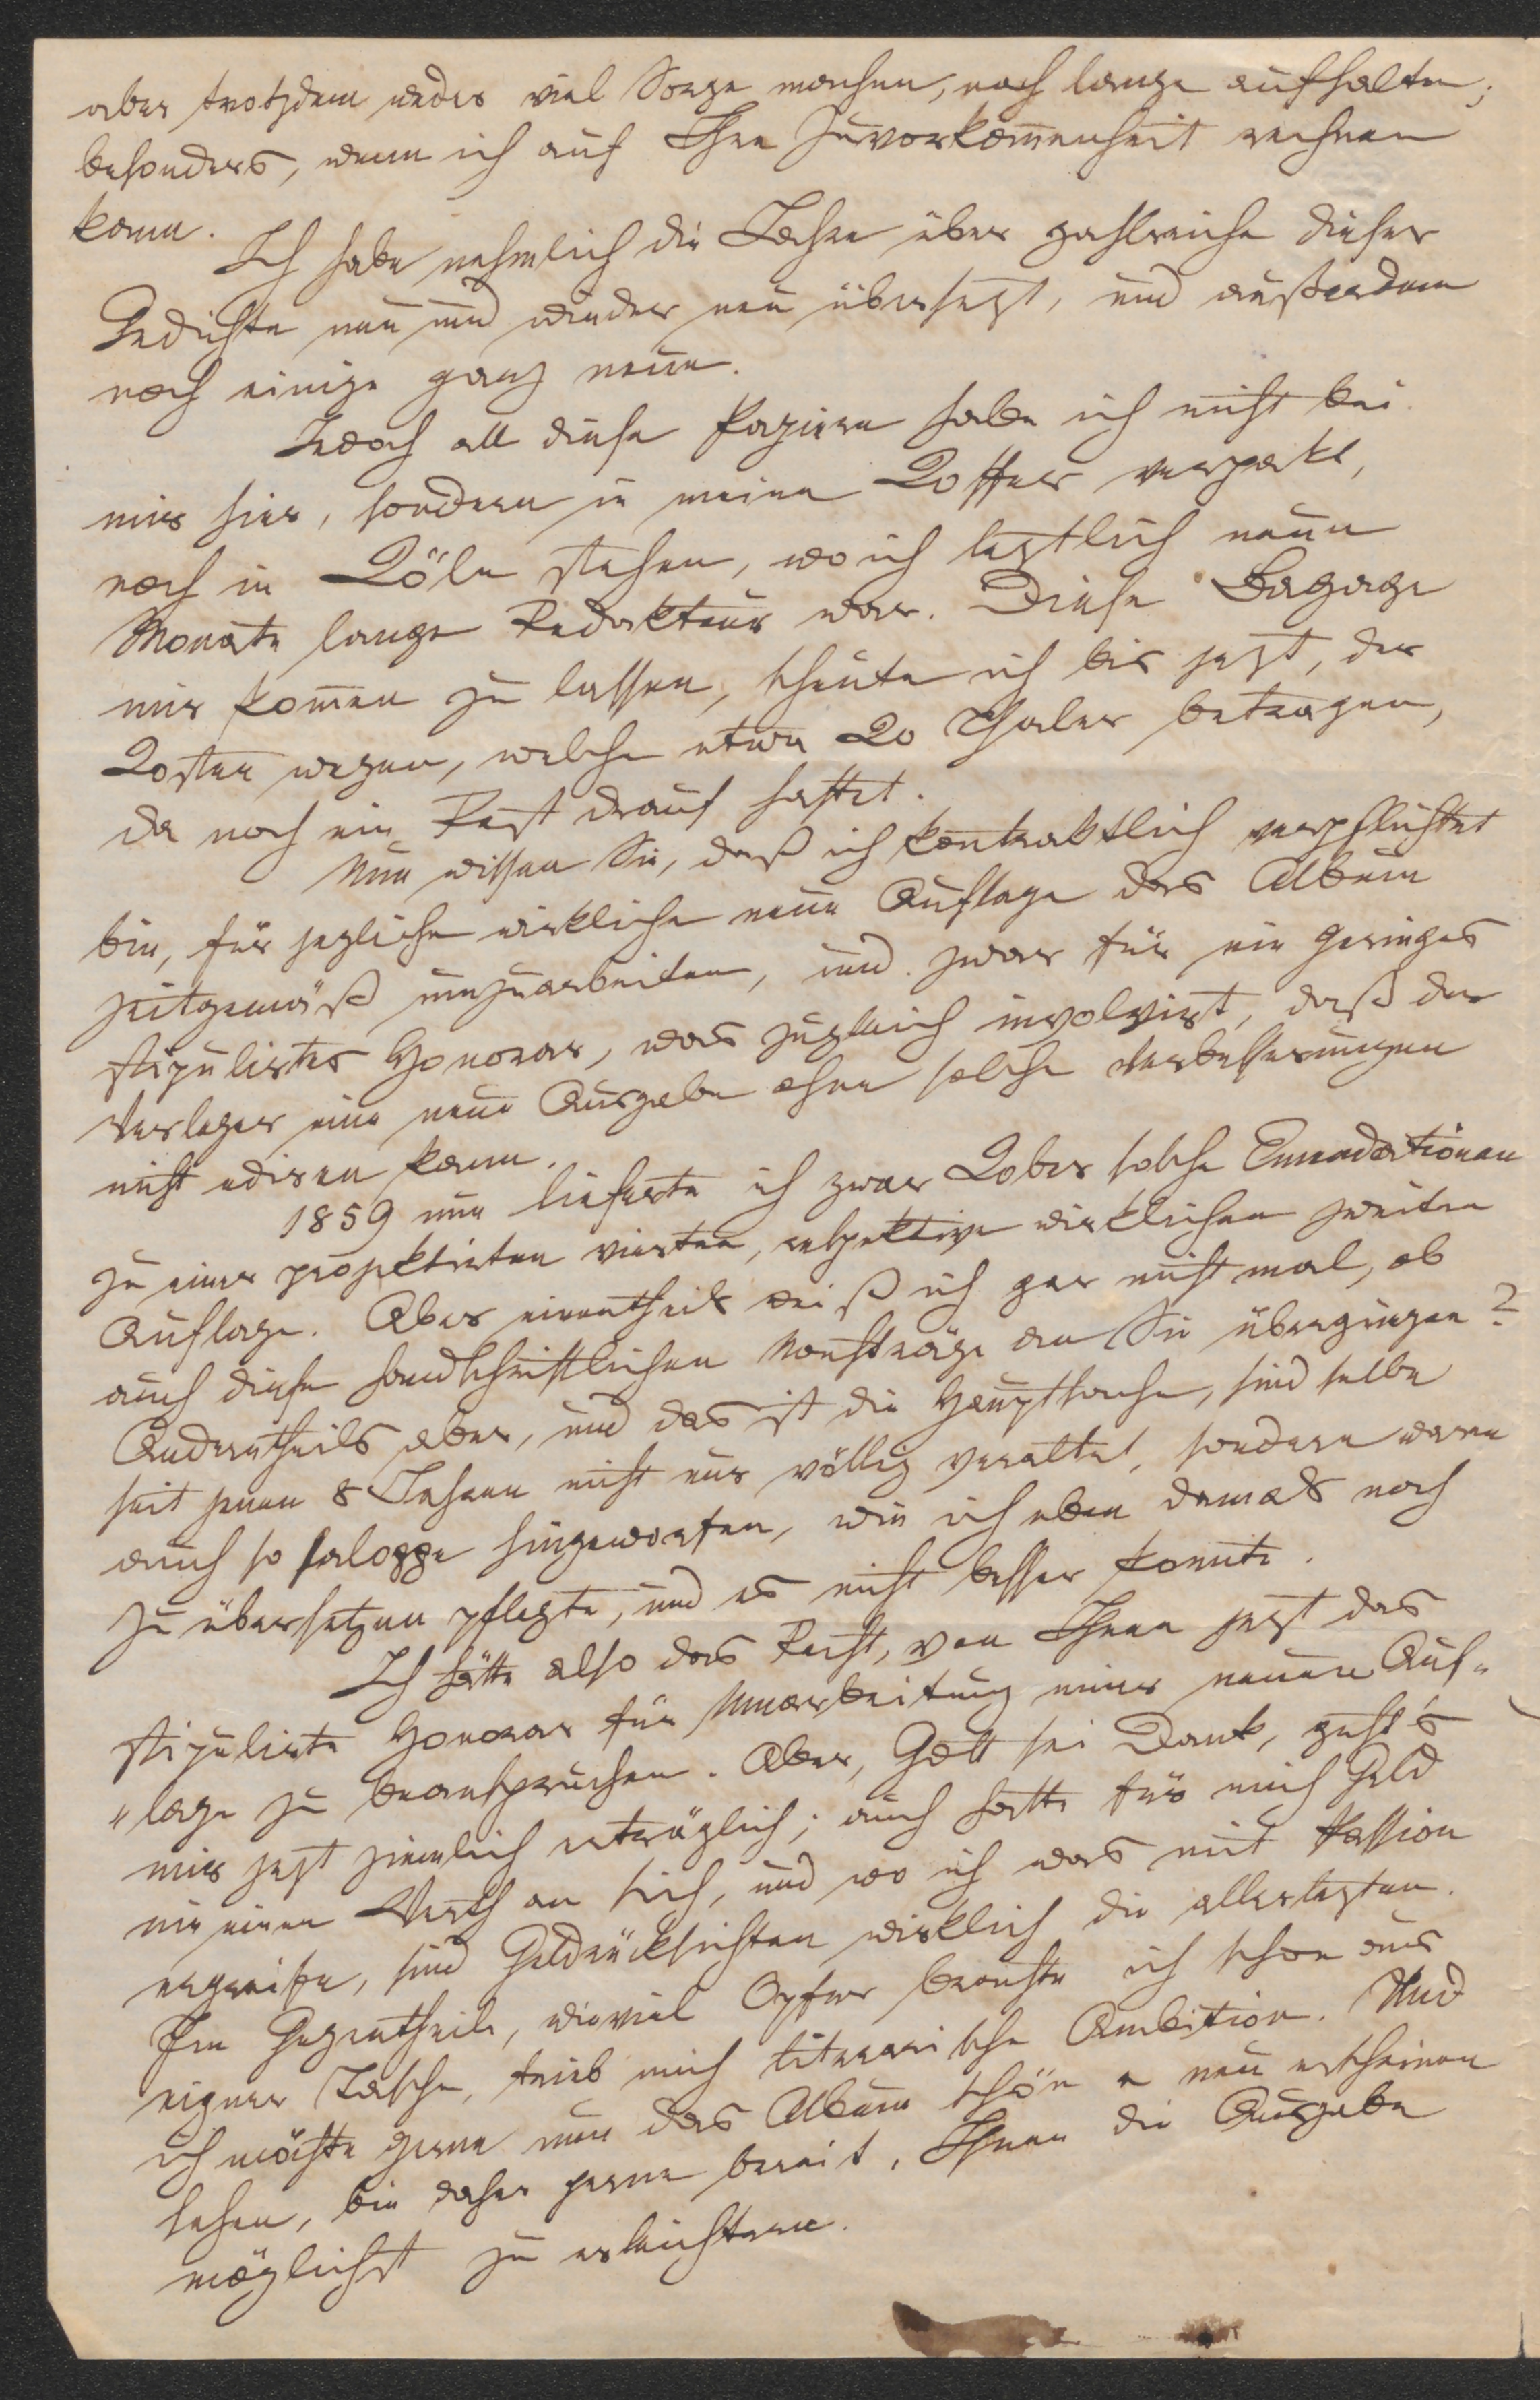 aber trotzdem weder viel Sorge machen, noch lange aufhalten;
besonders, wenn ich auf Ihre Zuvorkom̄enheit rechnen
kann.
Ich habe nehmlich die Jahre über zahlreiche dieser
Gedichte neu und wieder neu übersetzt, und außerdem
noch einige ganz neue.
Jedoch all diese Papiere habe ich nicht bei
mir hier, sondern in meinem Koffer verpakt,
noch in Köln stehen, wo ich leztlich neun
Monate lange Redakteur war. Diese Bagage
mir kom̄en zu lassen, scheute ich bis jezt, der
Kosten wegen, welche etwa 20 Thaler betragen,
da noch ein Rest drauf haftet.
Nun wissen Sie, daß ich kontraktlich verpflichtet
bin, für jegliche wirkliche neue Auflage das Album
zeitgemäß umzuarbeiten, und zwar für ein geringes
stipulirtes Honorar, was zugleich involvirt, daß der
Verleger eine neue Ausgabe ohne solche Verbesserungen
nicht ediren kann.
1859 nun lieferte ich zwar Kober solche Emendationen
zu einer projektirten vierten, respektive wirklichen zweiten
Auflage. Aber einentheils weiß ich gar nicht mal, ob
auch diese handschriftlichen Nachträge an Sie übergingen?
Anderntheils aber, und das ist die Hauptsache, sind selbe
seit jenen 8 Jahren nicht nur völlig veraltet, sondern waren
auch so saloppe hingeworfen, wie ich eben damals noch
zu übersetzen pflegte, und es nicht besser konnte.
Ich hätte also das Recht, von Ihnen jezt das
stipulirte Honorar für Umarbeitung einer neuen Auf-
lage zu beanspruchen. Aber, Gott sei Dank, geht's
mir jezt ziemlich erträglich; auch hatte für mich Geld
nie einen Werth an sich, und wo ich was mit Passion
ergreife, sind Geldrücksichten wirklich die allerlezten.
Im Gegentheil, wieviel Opfer brachte ich schon aus
eigner Tasche, trieb mich literarische Ambition. Und
ich möchte gerne nun das Album schön neu erscheinen
sehen, bin daher gerne bereit, Ihnen die Ausgabe
möglichst zu erleichtern.